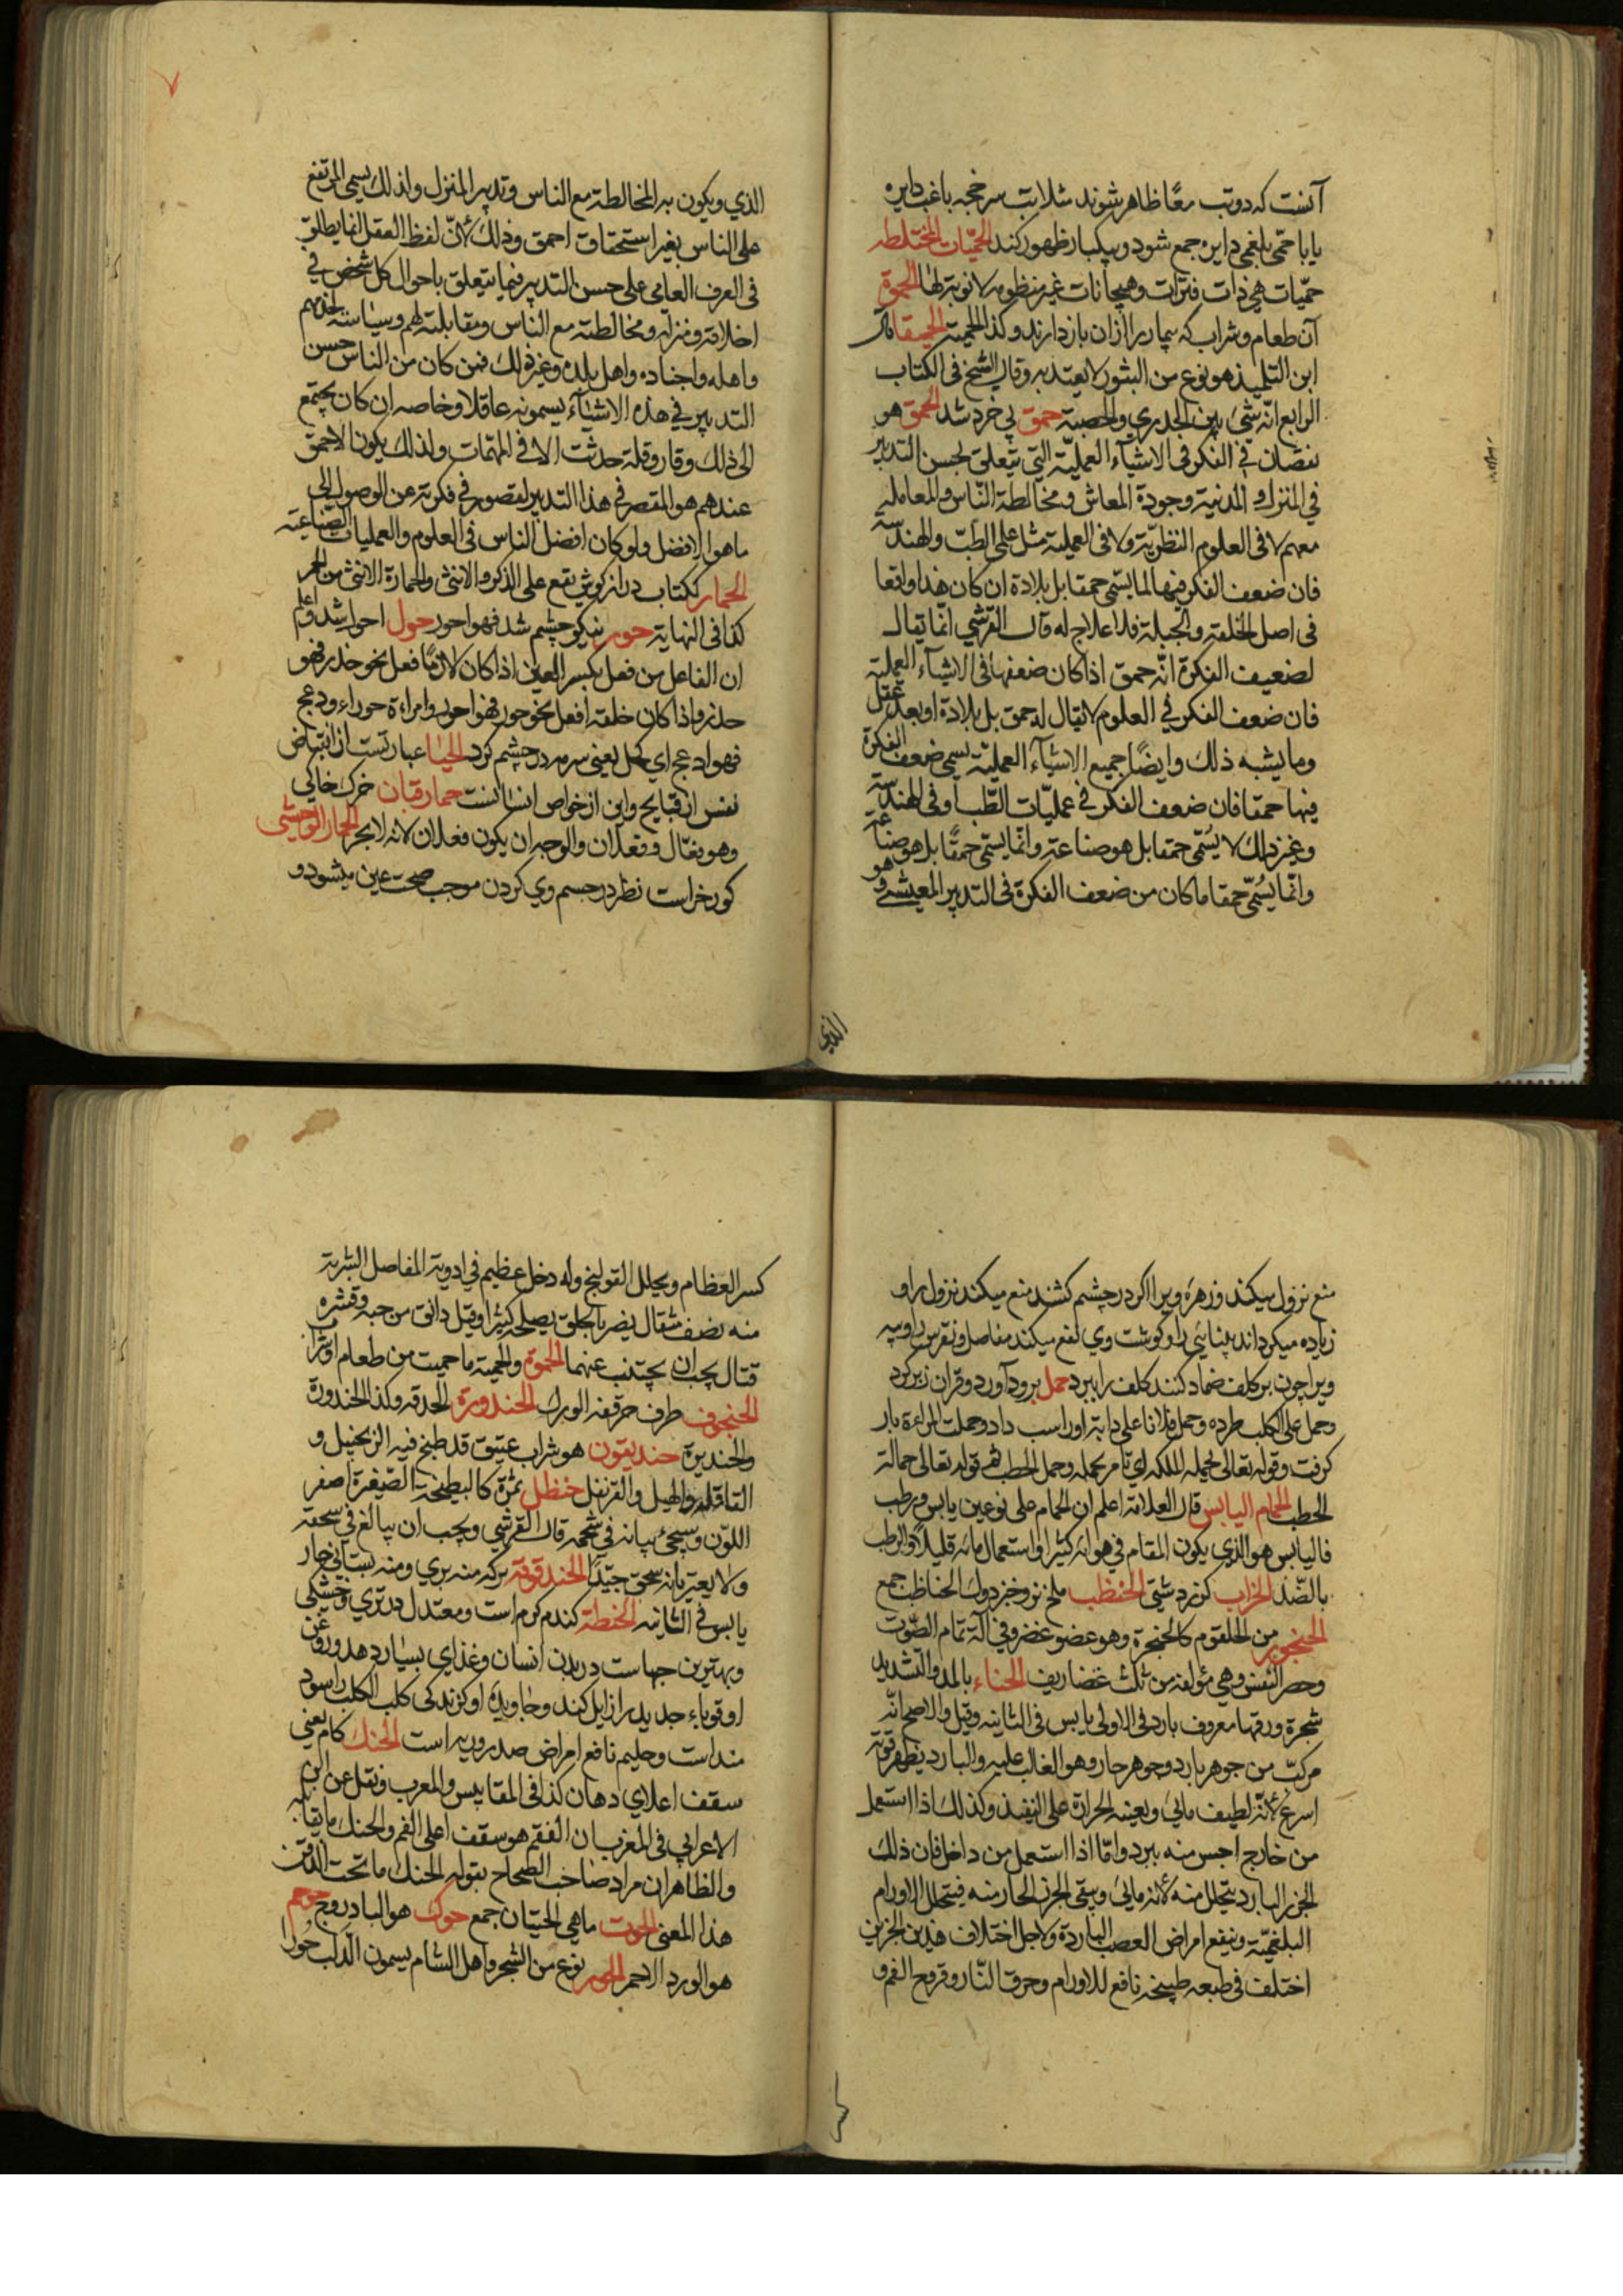 آنست که دو تب معًا ظاهر شوند مثلا تب سرخجه با غب دایره
یا با حمّی بلغمی دایره جمع شود و بیکبار ظهور کند الحمّیات المختلطه
حمّیات هی ذات فترات وهیجانات غیر منظومه لا نوبة لها الحموة
آن طعام و شراب که بیمار را از آن باز دارند وکذا الحمیة الحمیقا قال
ابن التلمیذ هو نوع من البثور لا یعتد به وقال الشیخ فی الکتاب
الرابع انّه شیٔ بین الجدري والحصبة حمق بی خرد شد الحمق هو
نقصان في الفکر فی الاشیآء العملیّة التي تتعلق بحسن التدبیر
في المنزل و المدنیة وجودة المعاش ومخالطة النّاس والمعاملة
معهم لا فی العلوم النظریّة ولا فی العملیة مثل علمي الطبّ والهندسة
فان ضعف الفکر فیها لا یسمّی حمقا بل بلادة ان کان هذا واقعا
فی اصل الخلقة والجبلة فلا علاج له قال القرشي انّما یقال
لضعیف الفکرة انّه حمق اذا کان ضعفها فی الاشیآء العملیة
فان ضعف الفکر في العلوم لا یقال له حمق بل بلادة او بعد تعقّل
وما یشبه ذلك وایضًا جمیع الاشیآء العملیّة یسمی ضعف الفکرة
فیها حمقا فان ضعف الفکر في عملیّات الطّب او فی الهندسة
وغیر ذلك لا یُسمّی حمقا بل هو صناعته وانّما یسمّی حمقًا بل هو صناعة
وانّما یُسمّی حمقا ما کان من ضعف الفکرة فی التدبیر المعیشي وهو
الذي ویکون به المخالطة مع الناس وتدبیر المنزل ولذلك یسمی المرتفع
علی الناس بغیر استحقاق احمق وذلك لأنّ لفظ العقل انما یطلق
فی العرف العامي علی حسن التدبیر فیما یتعلق باحوال کل شخص في
اخلاقه ومنزله ومخالطته مع الناس ومقابلته لهم وسیاسته لخدمه
واهله واجناده واهل بلده وغیر ذلك فمن کان من الناس حسن
التدبیر في هذه الاشیآء یسمونه عاقلا وخاصه ان کان یجتمع
الی ذلك وقار وقلة حدیث الا فی المهمّات ولذلك یکون الاحمق
عندهم هو المقصر في هذا التدبیر لقصور في فکرته عن الوصول الی
ما هو الافضل ولو کان افضل الناس فی العلوم والعملیات الصّناعیّة
الحمار ککتاب دراز کوش یقع علی الذکر والانثی والحمارة الانثی من الحمر
کذا فی النهایة حور نیکو چشم شد فهو احور حول احول شد واعلم
ان الفاعل من فعل بکسر العین اذا کان لازمًا فعل نحو حذر فهو
حذر واذا کان خلقة افعل نحو حور فهو احور وامراءة حوراء ودعج
فهو ادعج اي کحل یعنی سرمه در چشم کرد الحیا عبارتست از انقباض
نفس از قبایح واین از خواص انسانست حمار قبان خرك خاکي
وهو فعّال وفعلان والوجه ان یکون فعلان لانه لا یجر الحمار الوحشی
کورخر است نظر در جسم وي کردن موجب صحت عین میشود و
منع نزول میکند وزهره ویرا اکر در چشم کشند منع میکند نزول را و
زیاده میکرداند بینائي را وکوشت وي نفع میکند مفاصل ونقرس را وپیه
ویرا چون بر کلف ضماد کنند کلف را ببرد حمل برود آورد وقرآن زبر کرد
وحمل علی الکلب طرده وحمل فلانا علی دابة اورا اسب داد وحملت المراءة بار
کرفت وقوله تعالی تحمله الملئکه اي تامر بحمله وحمل الحطب في قوله تعالی حمالة
الحطب الحمام الیابس قال العلامة اعلم ان الحمام علی نوعین یابس ورطب
فالیابس هو الذي یکون المقام في هوائه کثیرا واستعمال مائه قلیلًا والرطب
بالضّد الخراب کوزد شتی الحنظب ملخ نر وخزدوك الحناظب جمع
الحنجور من الحلقوم کالحنجرة وهو عضو غضروفي آلة تمام الصّوت
وحصر النفس وهي مؤلفه من ثلث غضاریف الحناء بالمد والتشدید
شجرة ورقها معروف بارد فی الاولی یابس فی الثانیه وقیل والاصح انّه
مرکبّ من جوهر بارد وجوهر حار وهو الغالب علیه والبارد یظهر قوته
اسرع لأنّه لطیف مائي ویعینه الحرارة علی التنفیذ وکذلك اذا استعمل
من خارج احس منه ببرد وامّا اذا استعمل من داخل فان ذلك
الجزء البارد یتحلل منه لأنه مائي ویبقی الجزء الحار منه فیتحلل الاورام
البلغمیّة وینفع امراض العصب الباردة ولاجل اختلاف هذین الجزئین
اختلف فی طبعه طبیخه نافع للاورام وحرق النّار وقروح الفم و
کسر العظام ویحلل القولنج وله دخل عظیم في ادویة المفاصل الشربة
منه نصف مثقال یضر بالحلق یصلحه کثیرا وقیل دانق من حبه وقشره
قتال یجب ان یجتنب عنهما الحموة والحمیة ما حمیت من طعام او شراب
الحنجوف طرف حرقفة الورك الحندورة الحدقة وکذا الحندورة
والحندیرة حندیقون هو شراب عتیق قد طبخ فیه الزنجبیل و
القاقله والهیل والقرنفل حنظل ثمرة کالبطیخة الصّغیرة اصفر
اللوّن وسیجئ بیانه في شحمه قال القرشي ویجب ان یبالغ في سحقه
ولا یعتر بانه سحق جیّدًا الحندقوقة برکه منه بري ومنه بستاني حار
یابس في الثانیه الحنطة کندم کرم است ومعتدل در تري وخشکی
وبهترین جهاست در بدن انسان وغذاي بسیار دهد وروغن
او قوباء جدید را زایل کند وخاویده او کزندکی کلب الکلب را سود
منداست وحلیم نافع امراض صدر وریه است الحنك کام یعني
سقف اعلاي دهان کذا في المقاییس والمعرب ونقل عن ابن
الاعرابي في المغرب ان الفقم هو سقف اعلی الفم والحنك ما یقابله
والظاهر ان مراد صاحب الصّحاح بقوله الحنك ما تحت الذقن
هذا المعنی الحوت ماهي الحیتان جمع حوك هو البادروج حوجم
هو الورد الاحمر الحور نوع من الشجر واهل الشام یسمون الدّلب حورا